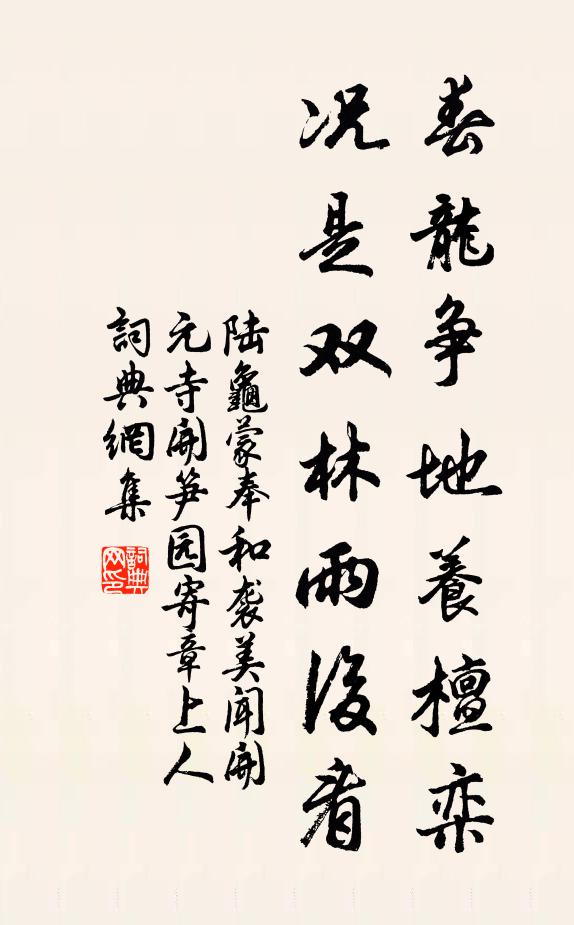 春龍争地養檀栾
况是双林雨後看
陆龜蒙奉和袭美聞開
元寺開笋园寄章上人
詞典網集
詞典网印